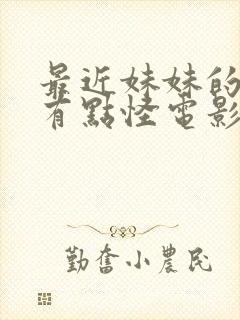 最近妹妹的
有點怪電影
勤奮小農民